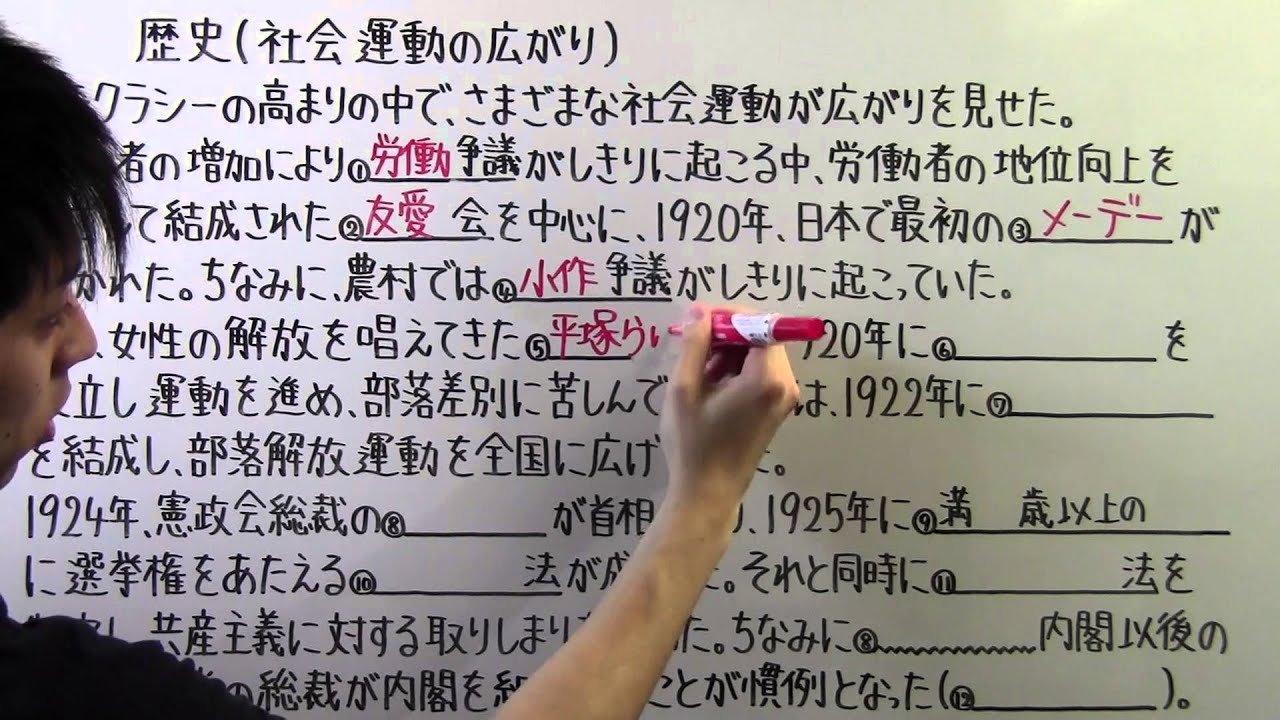 歴史(社会運動の広がり)
クラシーの高まりの中で、さまざまな社会運動が広がりを見せた。
者の増加により①労働争議がしきりに起こる中、労働者の地位向上を
て結成された②友愛会を中心に、1920年、日本で最初の③メーデーが
かれた。ちなみに、農村では④小作争議がしきりに起こっていた。
、女性の解放を唱えてきた⑤平塚らい 920年に⑥ を
立し運動を進め、部落差別に苦しんで は、1922年に⑦
を結成し、部落解放運動を全国に広げ た。
1924年、憲政会総裁の⑧ が首相 、1925年に⑨満 歳以上の
に選挙権をあたえる⑩ 法が成 た。それと同時に⑪ 法を
し、共産主義に対する取りしまり た。ちなみに⑧ 内閣以後の
の総裁が内閣を組 ことが慣例となった(⑫ )。